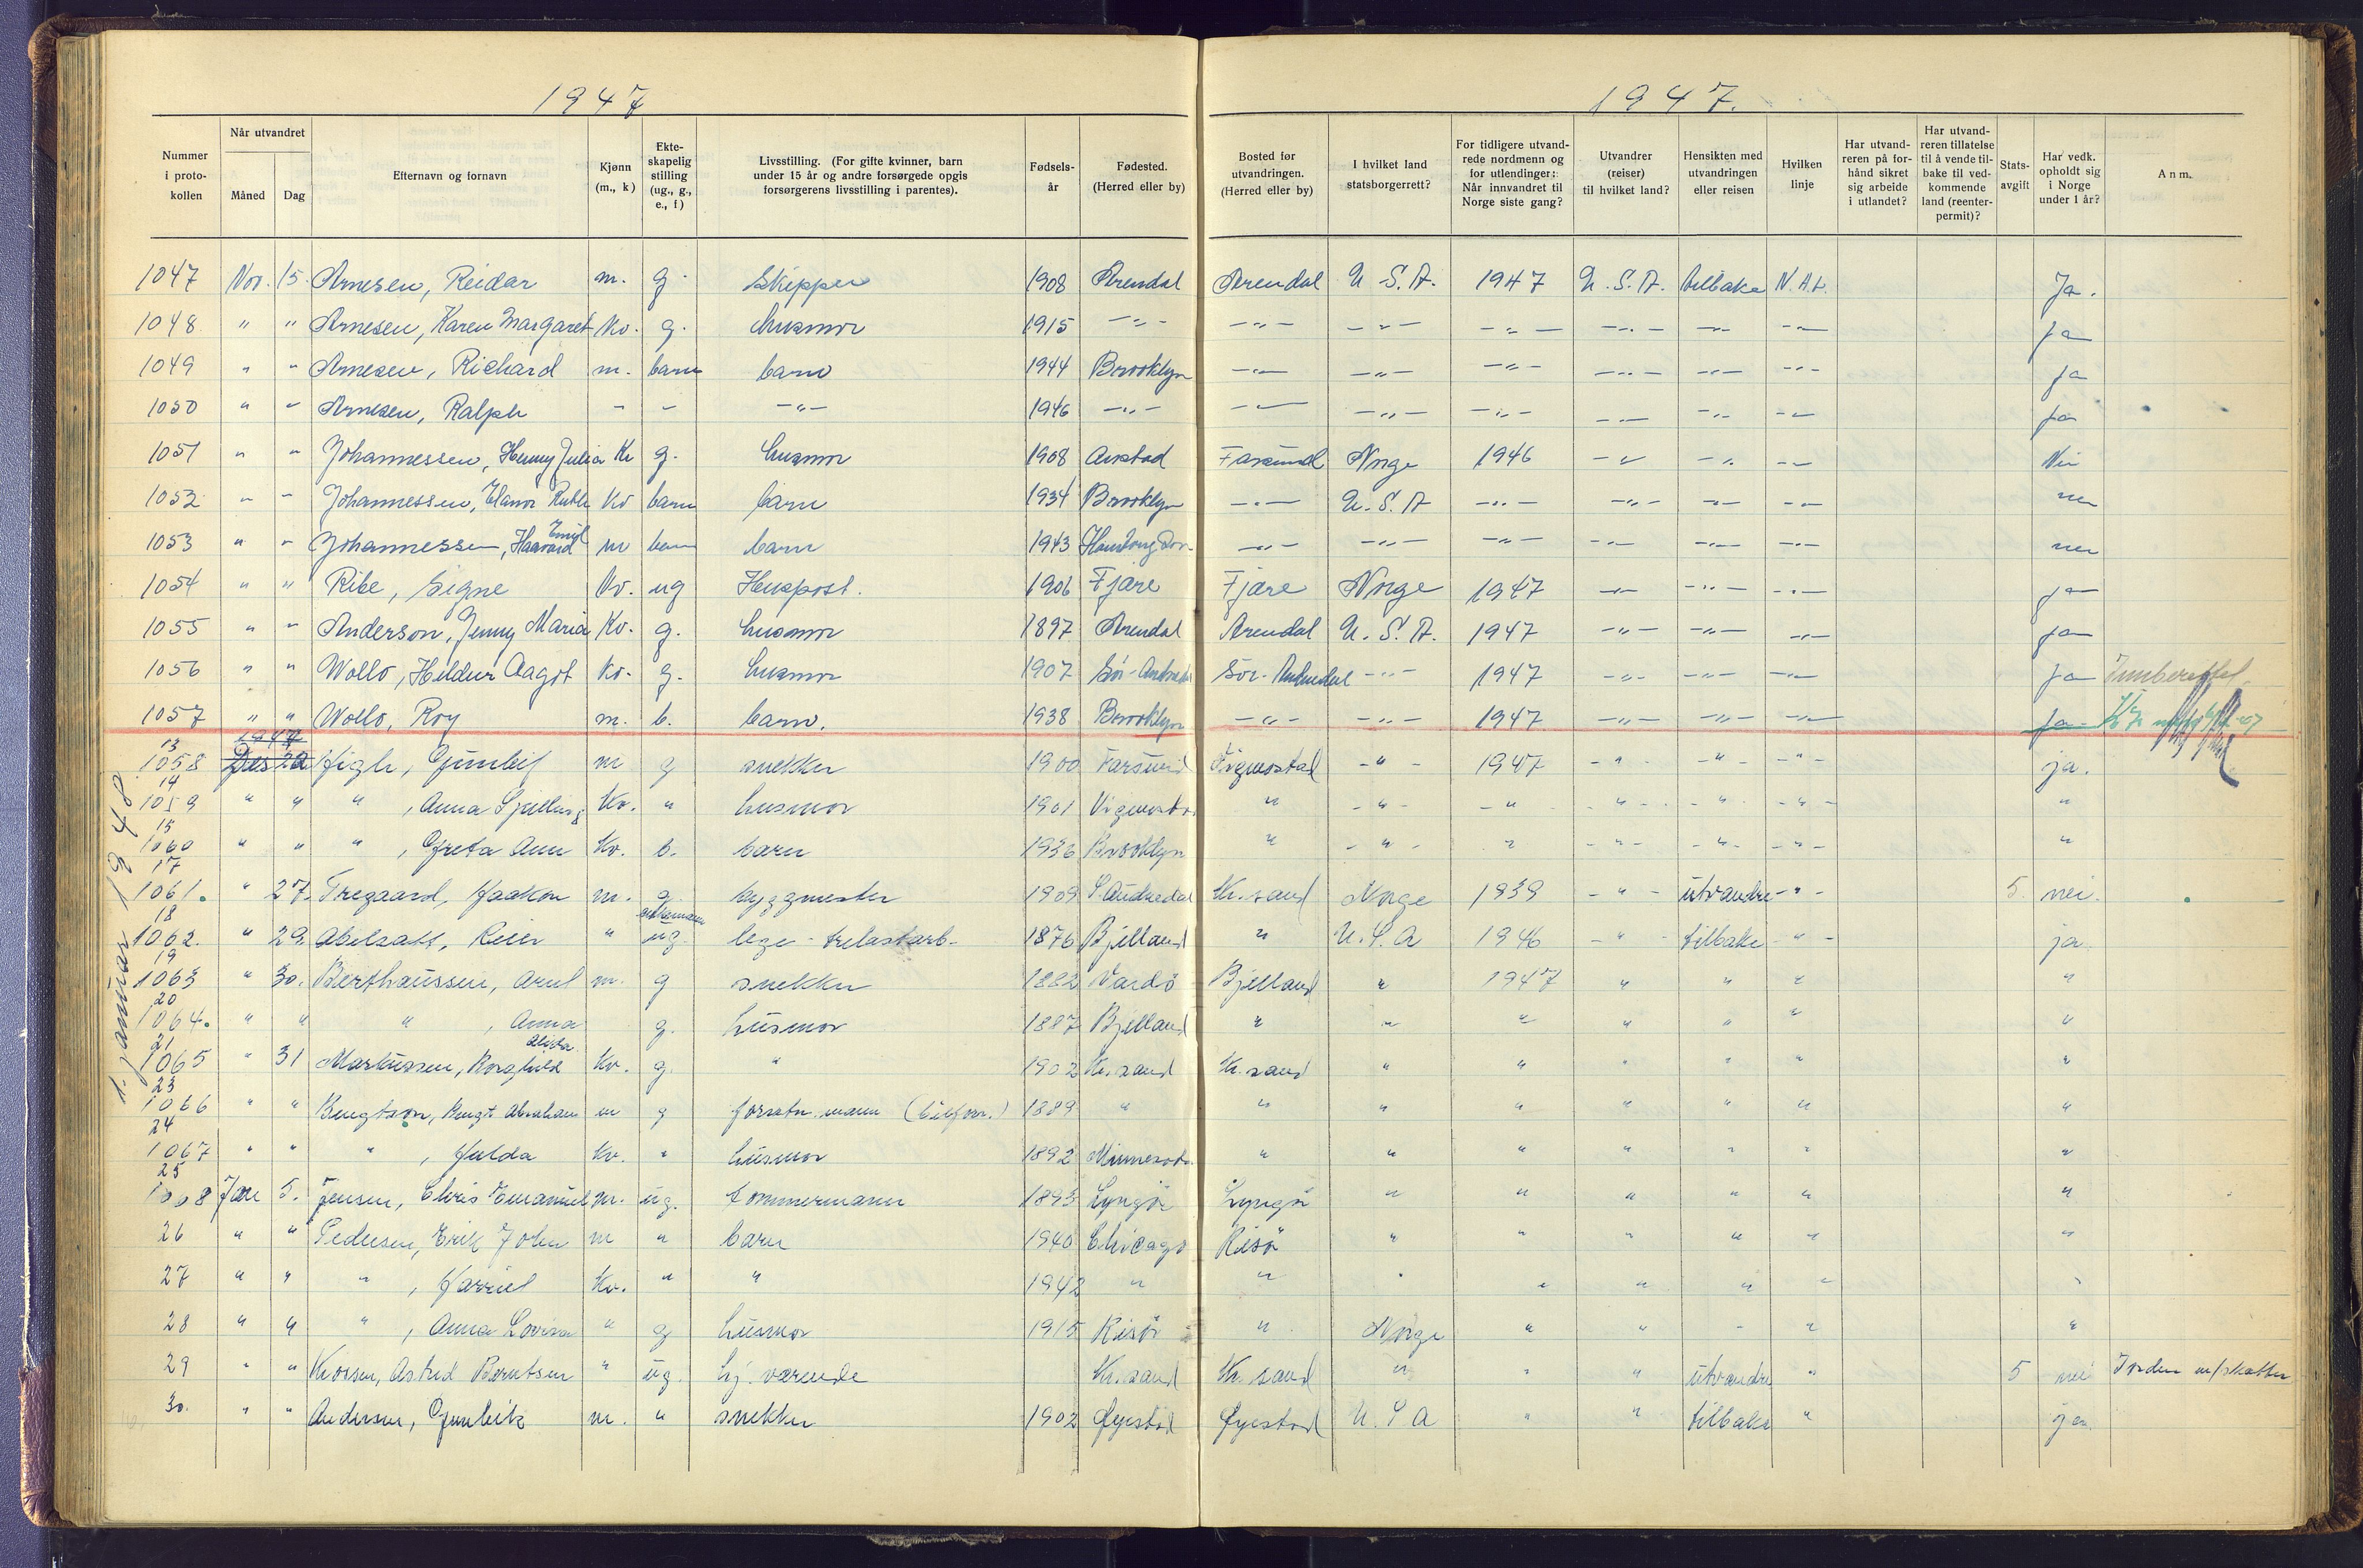 1947
1947.
Nummer i proto- kollen
Når utvandret
Måned
Dag
Efternavn og fornavn
Kjønn (m., k)
Ekte- skapelig stilling (ug., g., e., f)
Livsstilling. (For gifte kvinner, barn under 15 år og andre forsørgede opgis forsørgerens livsstilling i parentes).
Fødsels- år
Fødested. (Herred eller by)
Bosted før utvandringen. (Herred eller by)
I hvilket land statsborgerrett?
For tidligere utvand- rede nordmenn og for utlendinger: Når innvandret til Norge siste gang?
Utvandrer (reiser) til hvilket land?
Hensikten med utvandringen eller reisen
Hvilken linje
Har utvand- reren på for- hånd sikret sig arbeide i utlandet?
Har utvand- reren tillatelse til å vende til- bake til ved- kommende land (reenter- permit)?
Stats- avgift
Har vedk. opholdt sig i Norge under 1 år?
Anm.
1047 Nov. 15. Arnesen, Reidar m. g. Skipper 1908 Arendal Arendal U.S.A. 1947 U.S.A. tilbake N.A.L. Ja.
1048 " " Arnesen, Karen Margaret Kv. g. husmor 1915 -"- -"- -"- -"- -"- -"- -"- Ja
1049 " " Arnesen, Richard m. barn barn 1944 Brooklyn -"- -"- -"- -"- -"- -"- ja
1050 " " Arnesen, Ralph - - -"- 1946 -"- -"- -"- -"- -"- -"- -"- ja
1051 " " Johannessen, Henny Julia Kv g. husmor 1908 Farsund Norge 1946 -"- -"- -"- Nei
1052 " " Johannessen, Ruth Kv barn barn 1934 Brooklyn -"- U.S.A -"- -"- -"- -"- nei
1053 " " Johannessen, Haavard Emil m barn barn 1943 -"- -"- -"- -"- -"- -"- nei
1054 " " Ribe, Signe Kv. ug Huspost. 1906 Fjære Fjære Norge 1947 -"- -"- -"- ja
1055 " " Anderson, Jenny Maria Kv. g. husmor 1897 Arendal Arendal U.S.A. 1947 -"- -"- -"- ja
1056 " " Wollo, Hildur Aagot Kv. g. husmor 1907 Sör-Audnedal Sör-Audnedal -"- 1947 -"- -"- -"- ja Innberettet
1057 " " Wollo, Roy m. b. barn. 1938 Brooklyn -"- -"- 1947 -"- -"- -"- ja
1947
1. januar 1948
13
1058 Des 22 Högh, Gunleif m g snekker 1900 Farsund Vigmostad -"- 1947 -"- -"- -"- ja.
14
1059 " " " , Anna Kv. " husmor 1901 Vigmostad " -"- -"- -"- -"- -"- "
15
1060 " " " , Greta Ann Kv. b. barn 1936 Brooklyn " -"- " -"- -"- -"- "
17
1061. " 27. Tregaard, Haakon m. g. byggmester 1909 S. Audnedal Kr.sand Norge 1939 -"- utvandre -"- 5. nei.
18
1062. " 29. Abelsatt, Reier " ug. 1876 Bjelland " U.S.A 1946 -"- tilbake -"- ja.
19
1063 " 30. Berthaussen, Arnt m. g snekker 1882 Vardö Bjelland " 1947 " " " "
20
1064. " " " , Anna g. husmor 1887 Bjelland " " " " " " "
21
1065 " 31 Markussen, Borghild Alida Kv. g. " 1902 Kr.sand Kr.sand " " " " " "
23
1066 " " Bengtson, Bengt Abraham m g 1889 " " " " " " " "
24
1067 " " " , Hulda Kv. " husmor 1892 Minnesota " " " " " " "
25
1068 Jan 5. Jensen, Chris Emanuel m. ug. tommermann 1893 Lyngör Lyngör " " " " " "
26 " " Pedersen, Erik John m " barn 1940 Chicago Risör " " " " " "
27 " " " , Harriet Kv. " " 1942 " " " " " " " "
28 " " " , Anna Lovisa " g husmor 1915 Risör " Norge " " " " "
29 " " Krossen, Astrid Berntsen " ug. hj. værende Kr.sand Kr.sand " " " utvandre " 5 nei Orden m/skatten
30. " " Andersen, Gunleik m. " snekker 1902 Øyestad Øyestad U.S.A " " tilbake " ja